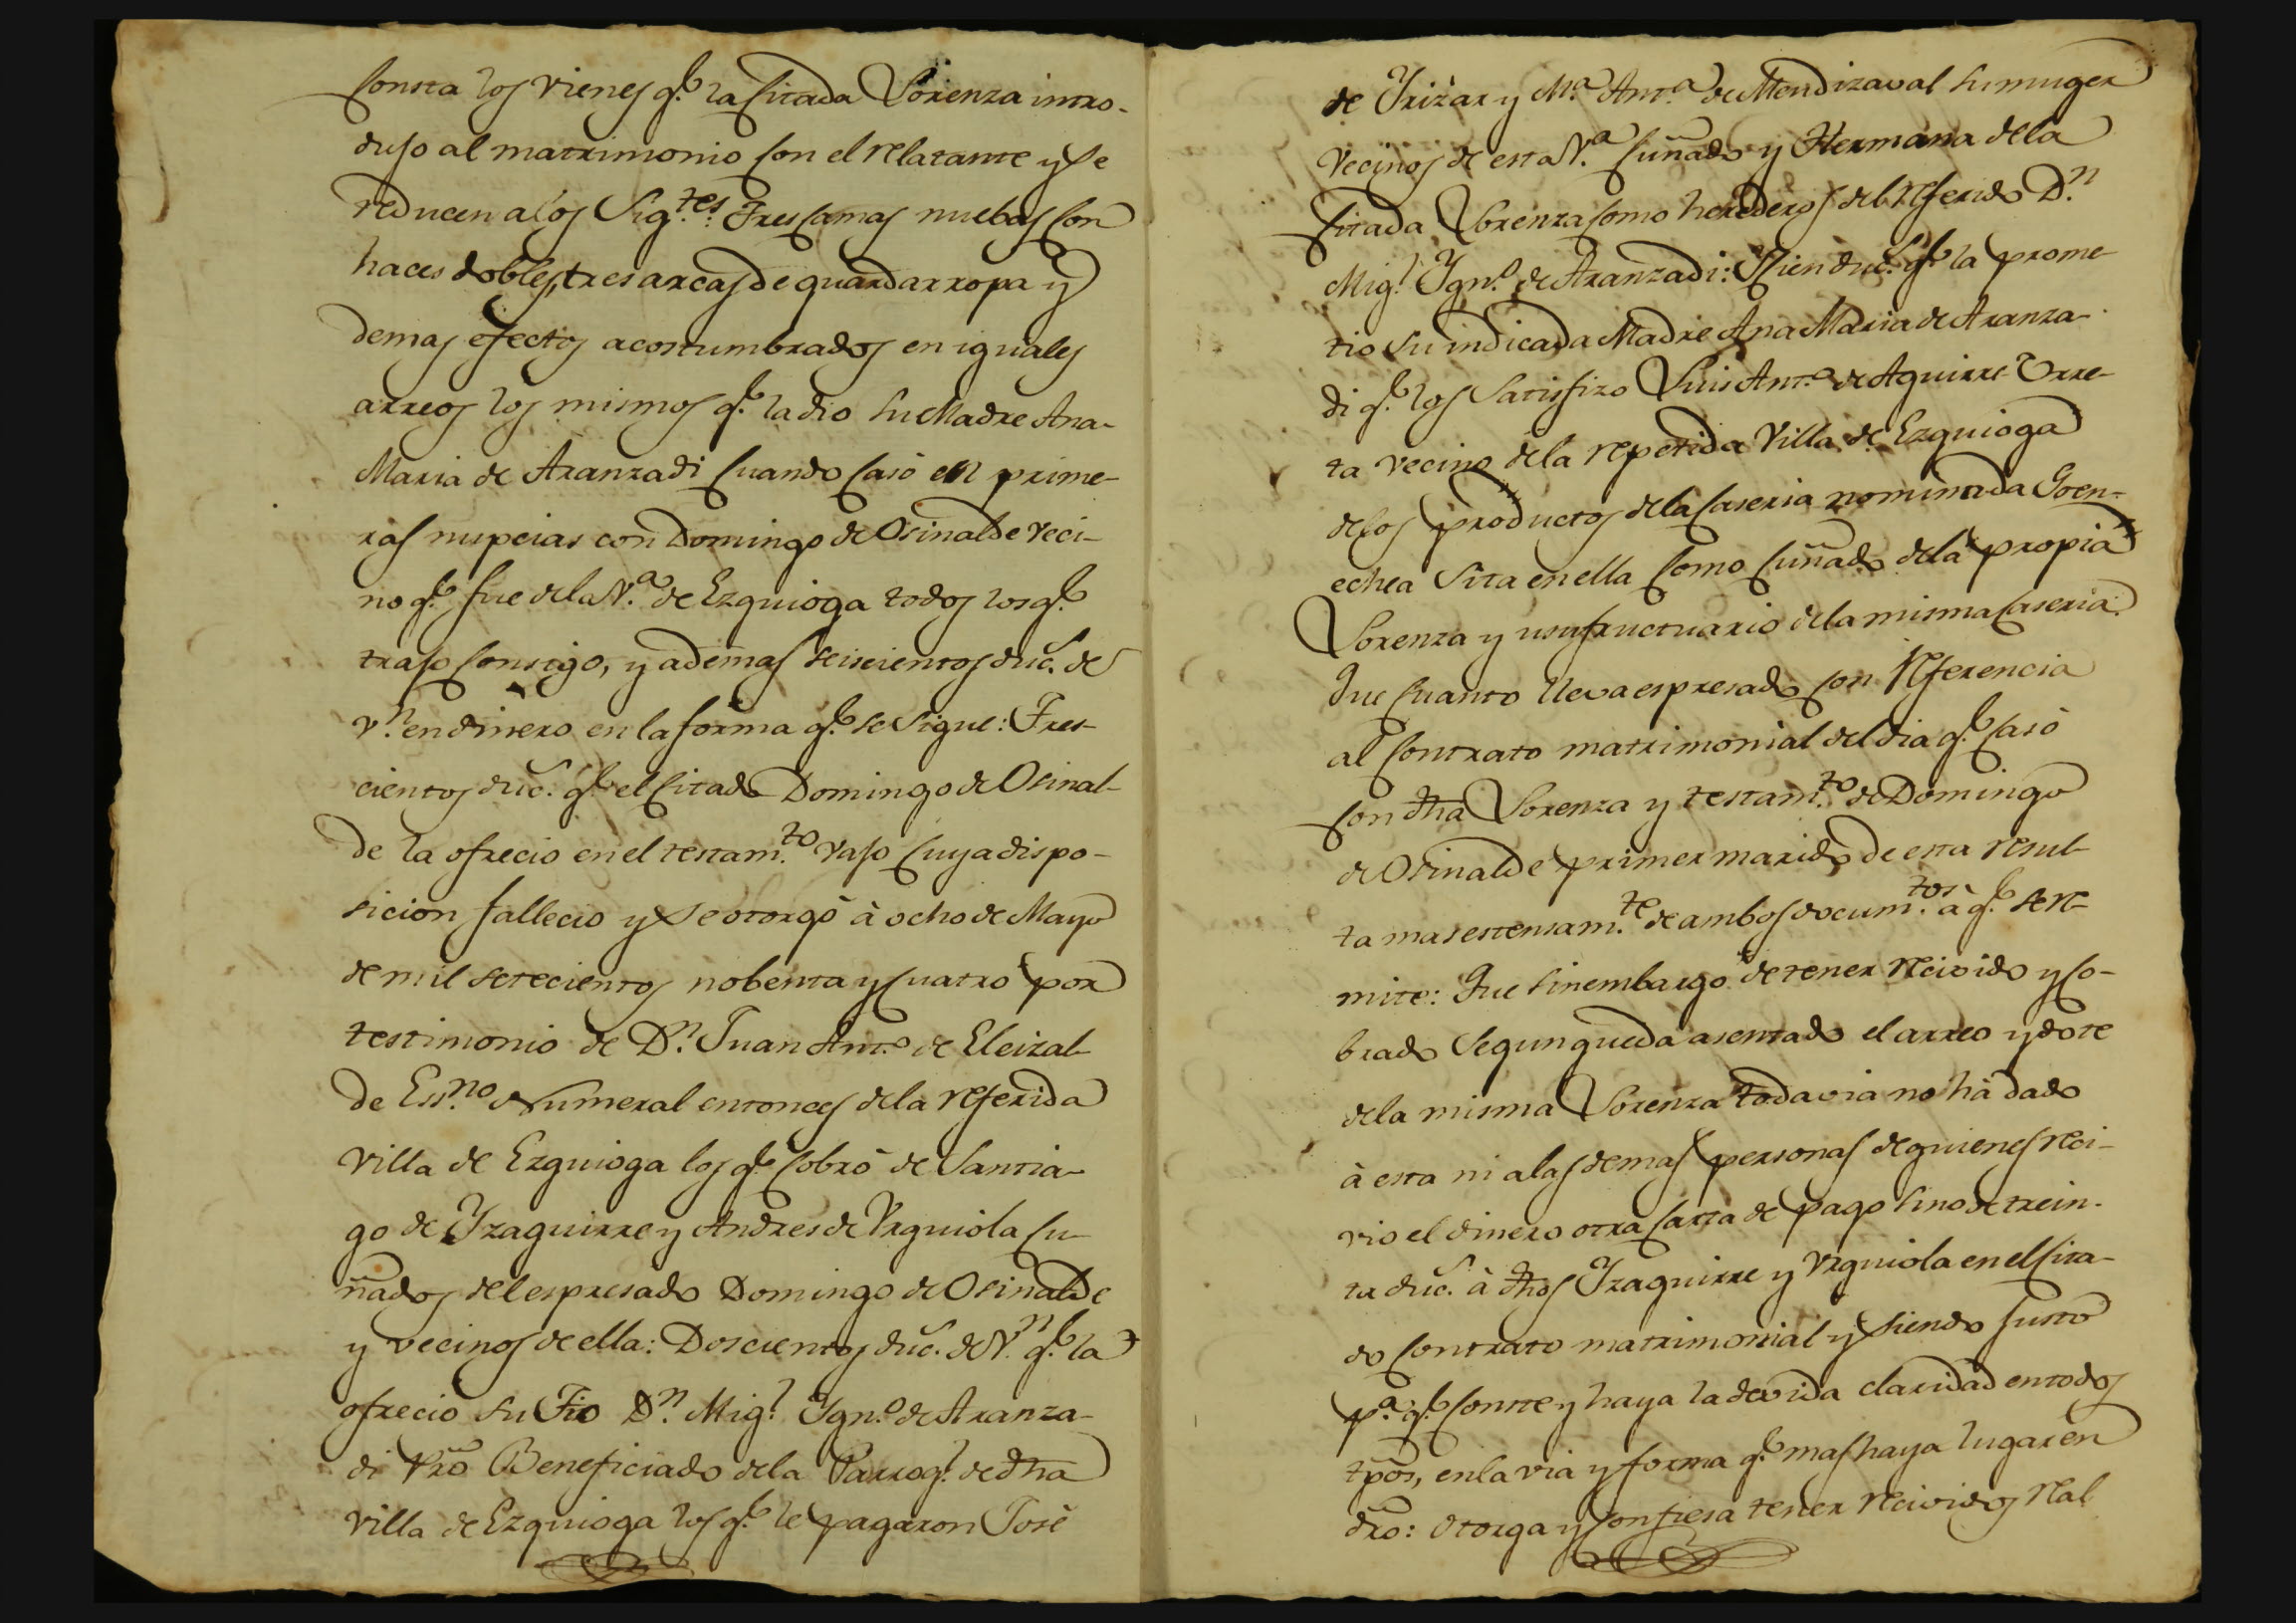 Consta los vienes q.e la citada Lorenza intro-
dujo al matrimonio con el relatante y se
reducen a los Sig.tes Tres camas nuebas con
haces dobles, tres arcas de guardarropa y
demas efectos acostumbrados en iguales
arreos los mismos q.e la dio su Madre Ana-
Maria de Aranzadi cuando casò en prime-
ras nupcias con Domingo de Osinalde veci-
no q.e fue de la V.a de Ezquioga todos los q.e
trajo consigo, y ademas seiscientos duc.s de
v.n en dinero en la forma q.e se sigue: Tres-
cientos duc.s q.e el citado Domingo de Osinal-
de la ofrecio en el testam.to vajo cuya dispo-
sicion fallecio y se otorgò à ocho de Mayo
de mil setecientos nobenta y cuatro por
testimonio de D.n Juan Ant.o de Eleizal-
de Ess.no Numeral entonces de la referida
Villa de Ezquioga los q.e cobrò de Santia-
go de Yzaguirre y Andres de Urquiola cu-
ñados del espresado Domingo de Osinalde
y vecinos de ella: Doscientos duc.s de V.n q.e la
ofrecio su Tio D.n Mig.l Ygn.o de Aranza-
di Pro Beneficiado de la Parroq.l de dha
Villa de Ezquioga los q.e le pagaron José
de Yrizar y M.a Ant.a de Mendizaval su muger
vecinos de esta V.a cuñado y Hermana de la
citada Lorenza como herederos del referido D.n
Mig.l Ygn.o de Aranzadi: Cien duc.s q.e la prome-
tio su indicada Madre Ana Maria de Aranza-
di q.e los satisfizo Luis Ant.o de Aguirre Urre-
ta vecino de la repetida Villa de Ezquioga
de los productos de la caseria nominada Goen-
echea sita en ella como cuñado de la propia
Lorenza y usufructuario de la misma caseria.
Que cuanto lleva espresado con referencia
al contrato matrimonial del dia q.e casò
con dha Lorenza y testam.to de Domingo
de Osinalde primer marido de esta resul-
ta mas estensam.te de ambos docum.tos à q.e se re-
mite: Que sin embargo de tener recivido y co-
brado segun queda asentado el arreo y dote
de la misma Lorenza todavia no hà dado
à esta ni a las demas personas de quienes reci-
vio el dinero otra carta de pago sino de trein-
ta duc.s à dhos Yzaguirre y Urquiola en el cita-
do contrato matrimonial y siendo justo
p.a q.e conste y haya la devida claridad en todos
tpos, en la via y forma q.e mas haya lugar en
dro: Otorga y confiesa tener recividos real